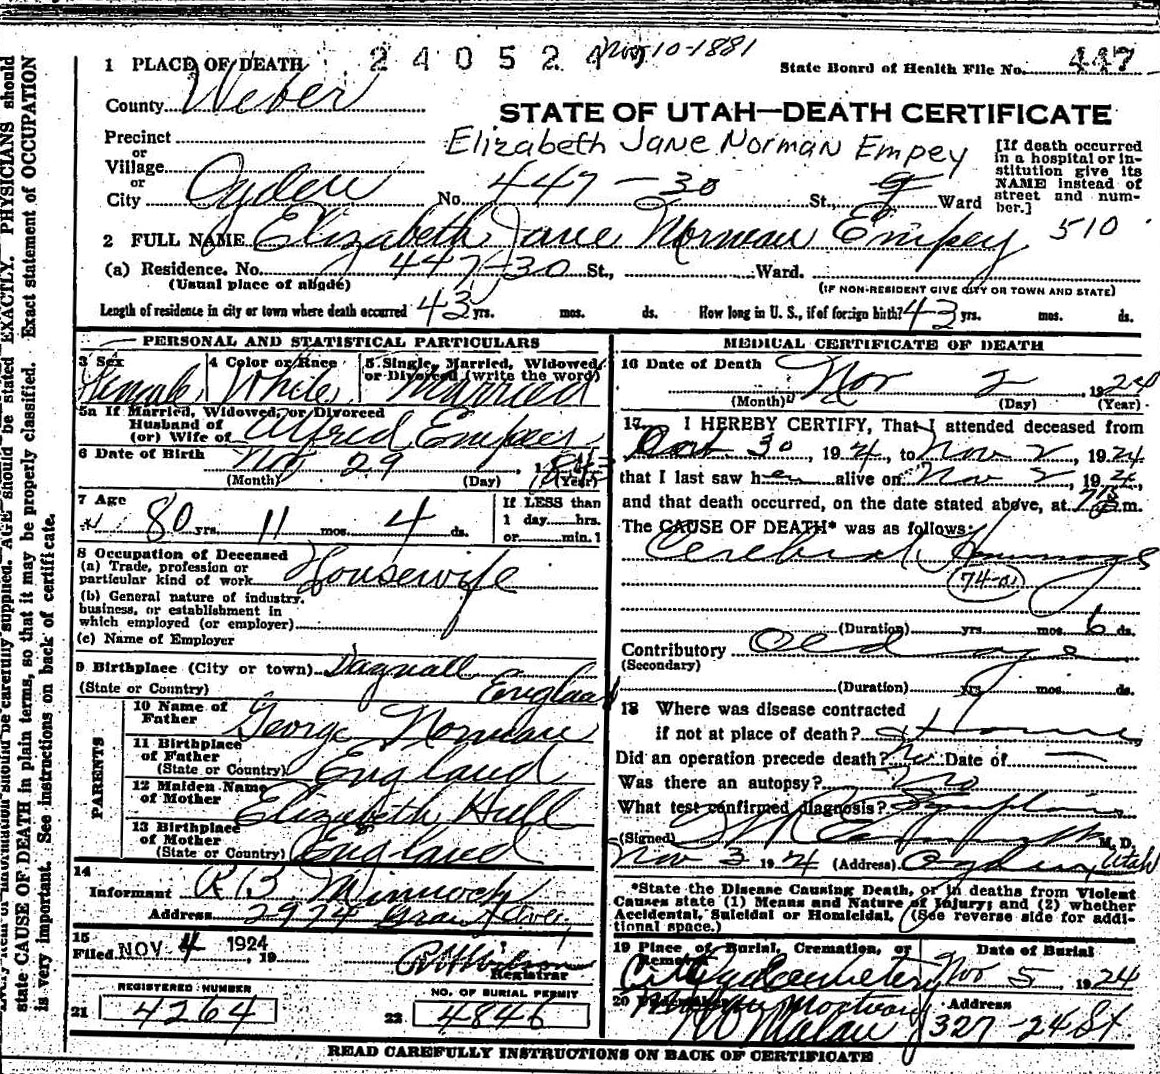 2 4 0 5 2 4 7 Nov 10-1881
1 PLACE OF DEATH
State Board of Health File No. 447
County Weber
STATE OF UTAH—DEATH CERTIFICATE
Precinct
or
Village
or
City Ogden No. 447 - 30 St., Ward
Elizabeth Jane Norman Empey
[If death occurred in a hospital or institution give its NAME instead of street and number.]
510
2 FULL NAME Elizabeth Jane Norman Empey
(a) Residence. No. 447-30 St., Ward.
(Usual place of abode) (IF NON-RESIDENT GIVE CITY OR TOWN AND STATE)
Length of residence in city or town where death occurred 43 yrs. mos. ds. How long in U. S., if of foreign birth? 43 yrs. mos. ds.
PERSONAL AND STATISTICAL PARTICULARS
3 Sex Female
4 Color or Race White
5 Single, Married, Widowed, or Divorced (write the word) Married
5a If Married, Widowed, or Divorced
Husband of
(or) Wife of Alfred Empey
6 Date of Birth Nov 29
(Month) (Day) (Year)
7 Age 80 yrs. 11 mos. 4 ds.
If LESS than
1 day hrs.
or min.
8 Occupation of Deceased
(a) Trade, profession or
particular kind of work Housewife
(b) General nature of industry,
business, or establishment in
which employed (or employer)
(c) Name of Employer
9 Birthplace (City or town) Dagnall
(State or Country) England
PARENTS
10 Name of Father George Norman
11 Birthplace of Father (State or Country) England
12 Maiden Name of Mother Elizabeth Hull
13 Birthplace of Mother (State or Country) England
14
Informant R B Minnoch
Address 2974 Grant Ave.
15
Filed NOV 4 1924, 19
Registrar
REGISTERED NUMBER
21 4264
NO. OF BURIAL PERMIT
22 4846
MEDICAL CERTIFICATE OF DEATH
16 Date of Death Nov 2 1924
(Month) (Day) (Year)
17 I HEREBY CERTIFY, That I attended deceased from
Oct 30, 1924, to Nov 2, 1924
that I last saw her alive on Nov 2, 1924,
and that death occurred, on the date stated above, at m.
The CAUSE OF DEATH* was as follows:
Cerebral Hemmorage
74-a
(Duration) yrs. mos. 6 ds.
Contributory Old age
(Secondary)
(Duration) yrs. mos. ds.
18 Where was disease contracted
if not at place of death? Home
Did an operation precede death? No Date of —
Was there an autopsy? No
What test confirmed diagnosis? Symptoms
(Signed) M. D.
Nov 3 1924 (Address) Ogden, Utah
*State the Disease Causing Death, or in deaths from Violent
Causes state (1) Means and Nature of Injury; and (2) whether
Accidental, Suicidal or Homicidal. (See reverse side for additional space.)
19 Place of Burial, Cremation, or Removal City Cemetery
Date of Burial Nov 5, 1924
20 Mortuary
Malan
Address
327 - 24 St
READ CAREFULLY INSTRUCTIONS ON BACK OF CERTIFICATE
AGE should be stated EXACTLY. PHYSICIANS should
state CAUSE OF DEATH in plain terms, so that it may be properly classified. Exact statement of OCCUPATION
is very important. See instructions on back of certificate.